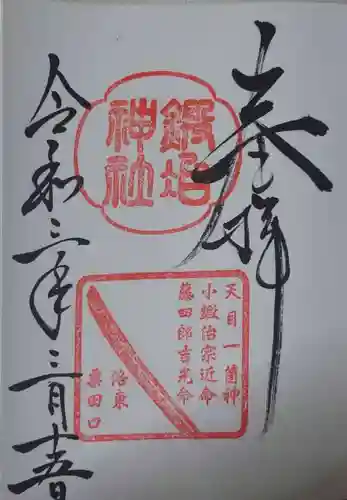 奉拝
鍛冶
神社
天目一箇神
小鍛冶宗近命
藤四郎吉光命
洛東
粟田口
令和三年三月十五日